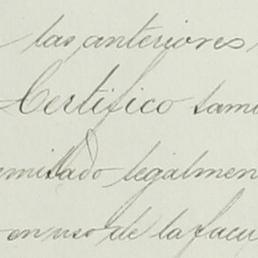 las anteriores
Certifico tam
emitado legalmen
en uso de la facu